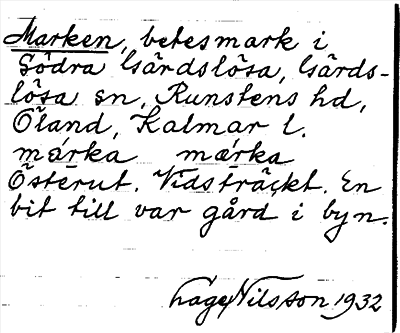 Marken, betesmark i
Södra Gärdslösa, Gärds-
lösa sn, Runstens hd,
Öland, Kalmar l.
márka mærka
Österut. Vidsträckt. En
bit till var gård i byn.
Hage Nilsson 1932